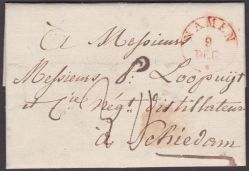 NAMEN
9
DEC
à Messieurs
Messieurs P. Loopuijt
et Cie Négts distillateurs
à Schiedam